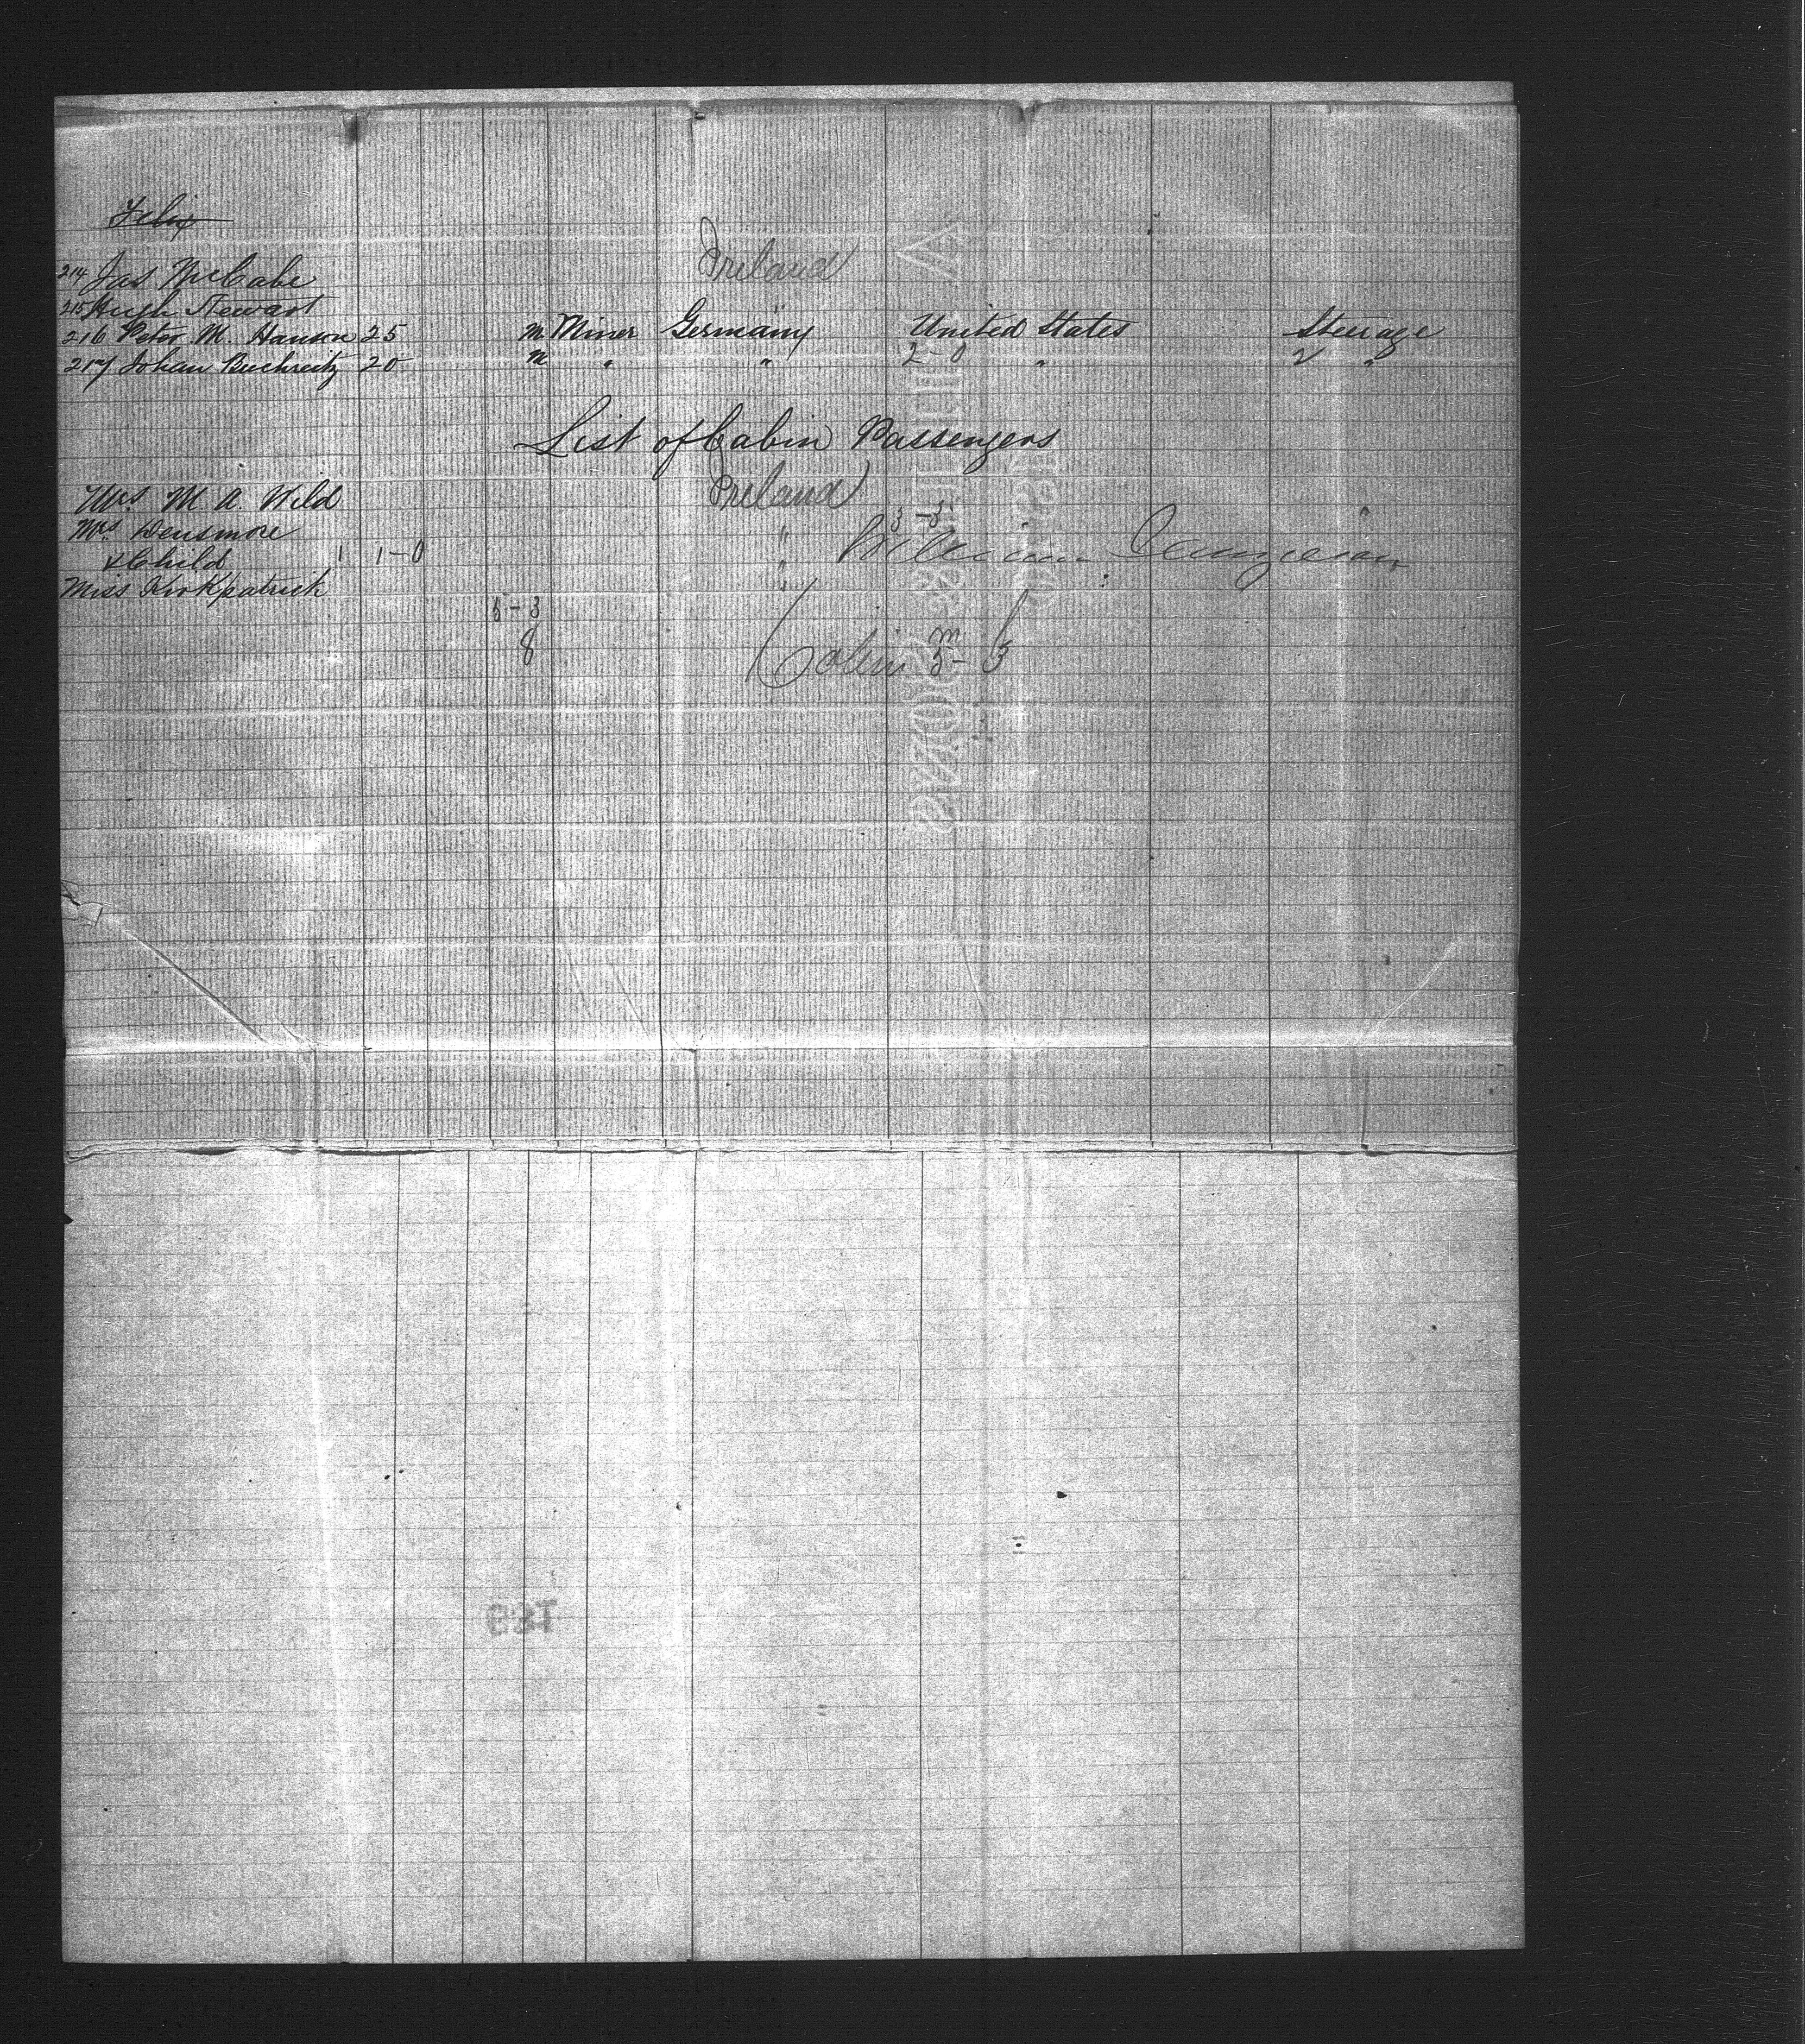 Felix
214 Jas McCabe Ireland
215 Hugh Stewart
216 Peter M. Hanson 25 M Miner Germany United States Steerage
217 Johan Buchreitz 20 M " " 2-0 " 2 "
List of Cabin Passengers
Mrs. M. A. Wild Ireland
3-3
Mrs. Densmore "
& Child 1 1-0 William
Miss Kirkpatrick "
5-3
8
m
Cabin 5-3
& SONS